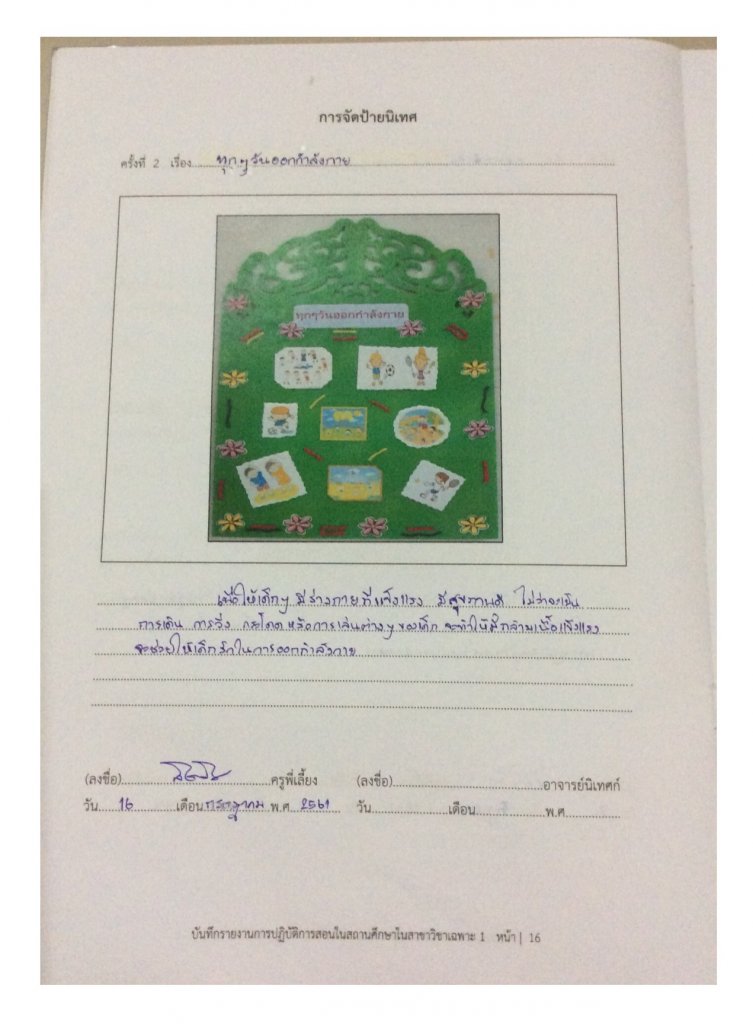 การจัดป้ายนิเทศ
ครั้งที่ 2 เรื่อง ทุกๆวันออกกำลังกาย
ทุกๆวันออกกำลังกาย
เพื่อให้เด็กๆ มีร่างกายที่แข็งแรง มีสุขภาพดี ไม่ว่าจะเป็น
การเดิน การวิ่ง กระโดด หรือการเล่นต่างๆ ของเด็ก จะทำให้มีกล้ามเนื้อแข็งแรง
จะช่วยให้เด็กรักในการออกกำลังกาย
(ลงชื่อ) ครูพี่เลี้ยง (ลงชื่อ) อาจารย์นิเทศก์
วัน 16 เดือน กรกฎาคม พ.ศ 2561 วัน เดือน พ.ศ
บันทึกรายงานการปฏิบัติการสอนในสถานศึกษาในสาขาวิชาเฉพาะ 1 หน้า | 16